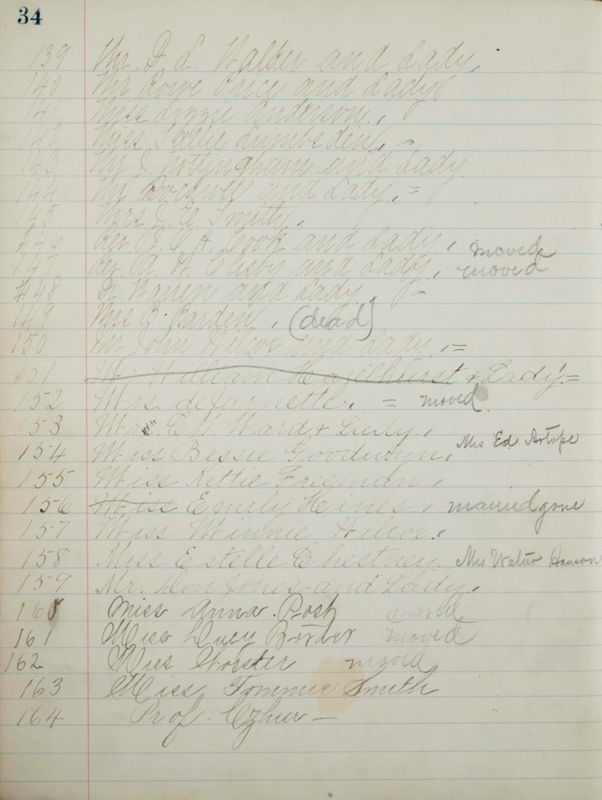 34
139 Mr. A. L. Walker and Lady.
140 Mr Price and Lady
141 Miss Lizzie Anderson.
142 Miss Sallie Lumbsden, -
143 Mr J Nottingham and Lady
144 Mr and Lady. =
145 Mrs J. E. Smith,
146 Cook and Lady, moved
147 and Lady, moved
148 Dr and Lady, -
149 Mrs B. Harden, (dead)
150 Mr John Wilcox and Lady, =
151 Mr William Hazelhurst + Lady =
152 Mrs. deJarnette. = moved.
153 E. W. Ward +
154 Miss Bessie Goodwyn, Mrs Ed Artope
155 Miss Kittie Freeman,
156 Miss Emily Hines, married gone
157 Miss Minnie Wilcox.
158 Miss Estelle Chestney Mrs Walter
159 Mr. Jones and Lady.
160 Miss Anna Post moved
161 Miss Lucy Border moved
162 Miss moved
163 Miss Tommie Smith
164 Prof. —